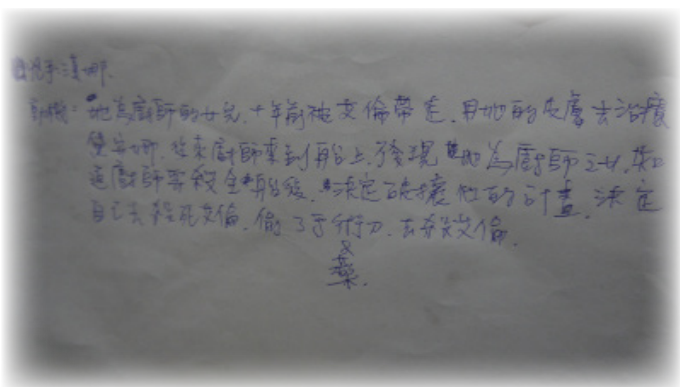 兇手:漢娜.
動機: 她為廚師的女兒,十年前被艾倫帶走,用她的皮膚去治療
安娜.後來廚師來到船上,發現她為廚師之女,知
道廚師要殺全船後,決定破壞他的計畫,決定
自己去殺死艾倫,偷了手術刀,去殺艾倫.
&
藥.